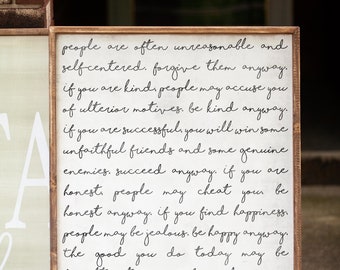 people are often unreasonable and
self-centered. forgive them anyway.
if you are kind, people may accuse you
of ulterior motives. be kind anyway.
if you are successful, you will win some
unfaithful friends and some genuine
enemies. succeed anyway. if you are
honest, people may cheat you. be
honest anyway. if you find happiness,
people may be jealous. be happy anyway.
the good you do today may be